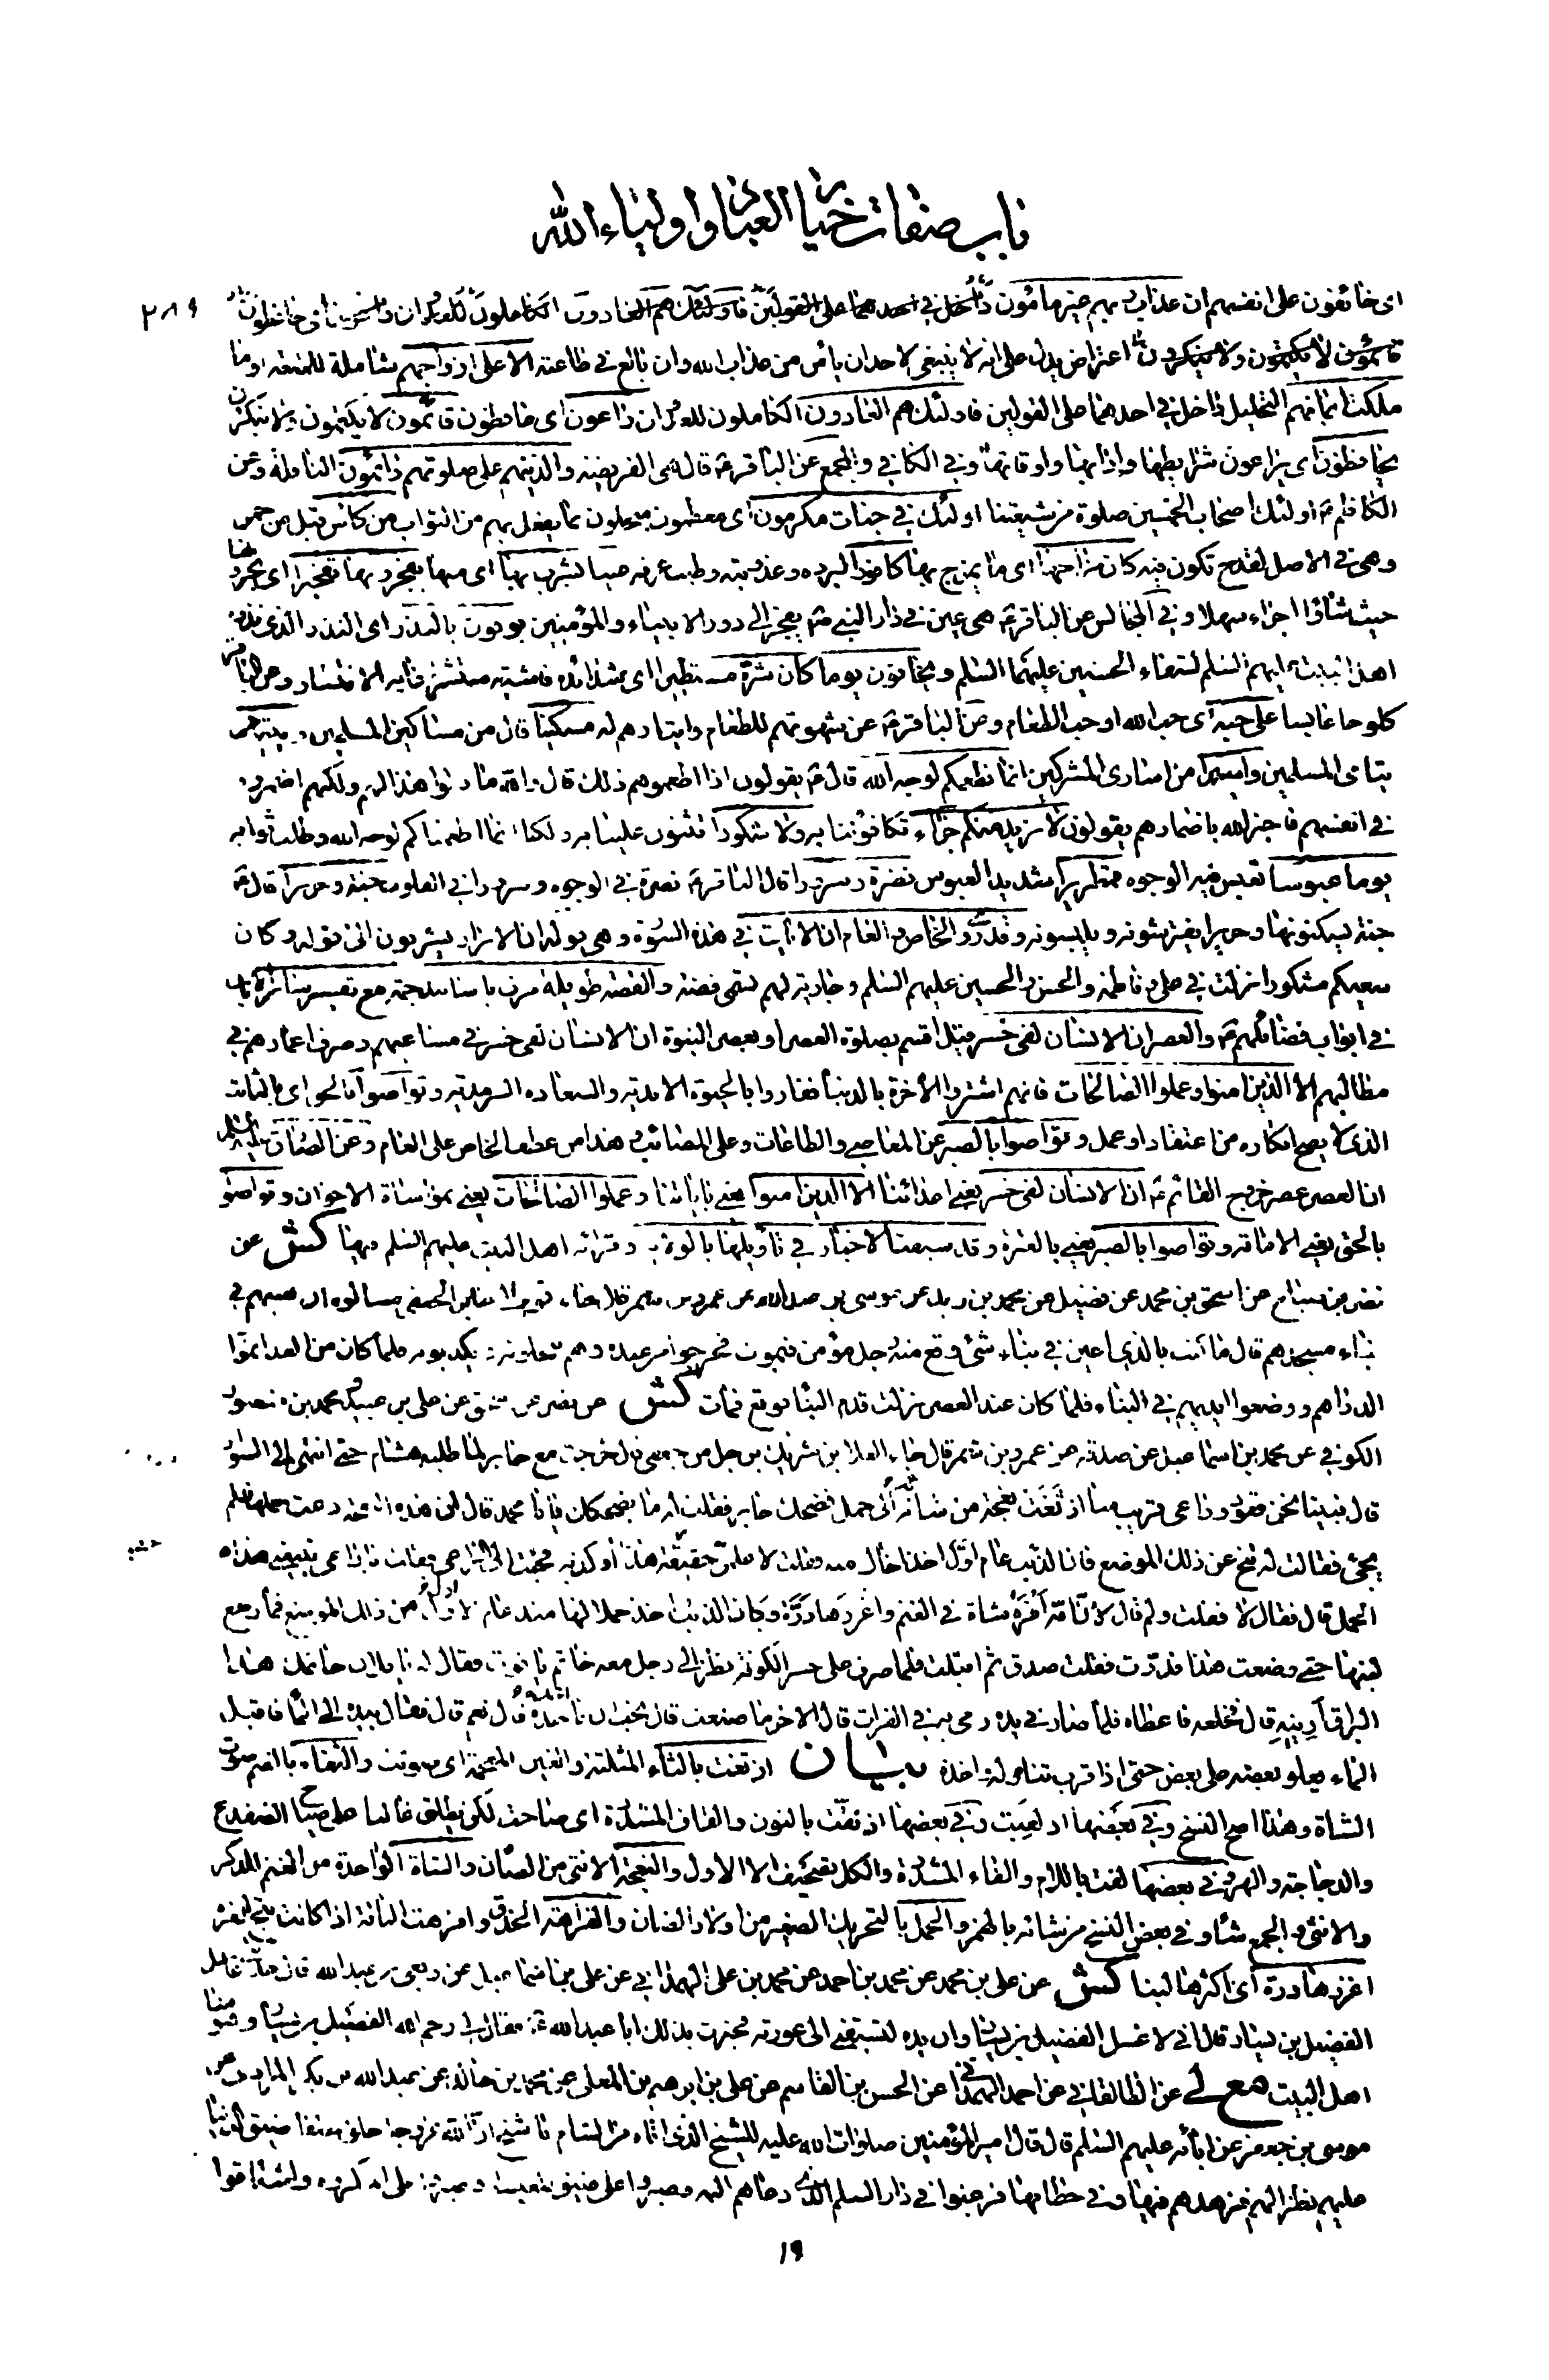 باب صفات خيار العباد واولياء الله
٢٨٩
اى خائفون على انفسهم ان عذاب ربهم غير مامون
قائمون لا يكتمون ولا ينكرون اعتراض يدل على انه لا ينبغى لاحد ان يامن من عذاب الله وان بالغ فى طاعته الا على ازواجهم شاملة للمتعة او ما
ملكت ايمانهم التحليل داخل فى احدهما على القولين فاولئك هم العادون الكاملون للعدوان راعون اى حافظون قائمون لا يكتمون ولا ينكرون
يحافظون اى يراعون شرايطها وادابها واوقاتها وفى الكافى والمجمع عن الباقر ع قال هى الفريضة والذين هم على صلوتهم دائمون النافلة وعن
الكاظم ع اولئك اصحاب الخمسين صلوة من شيعتنا اولئك فى جنات مكرمون اى معظمون مبجلون بما يفعل بهم من الثواب من كاس قيل من خمر
وهى فى الاصل لقدح تكون فيه كان مزاجها اى ما يمزج بها كافورا لبرده وعذوبته وطيب عرفه عينا يشرب بها اى منها يفجرونها تفجيرا اى يجرونها
حيث شاؤا اجراء سهلا وفى المجالس عن الباقر ع هى عين فى دار النبى ص يفجر الى دور الانبياء والمؤمنين يوفون بالنذر اى النذر الذى نذره
اهل البيت عليهم السلم لشفاء الحسنين عليهما السلم ويخافون يوما كان شره مستطيرا اى شدائده فاشية منتشرة غاية الانتشار وعن الباقر
كلوحا عابسا على حبه اى حب الله او حب الطعام وعن الباقر ع عن شهوتهم للطعام وايثارهم له مسكينا قال من مساكين المسلمين ويتيما من
يتامى المسلمين واسيرا من اسارى المشركين انما نطعمكم لوجه الله قال ع يقولون اذا اطعموهم ذلك قال والله ما قالوا هذا لهم ولكنهم اضمروه
فى انفسهم فاخبر الله باضمارهم يقولون لا نريد منكم جزاء تكافؤننا به ولا شكورا تثنون علينا به ولكنا انما اطعمناكم لوجه الله وطلب ثوابه
يوما عبوسا تعبس فيه الوجوه قمطريرا شديد العبوس نضرة وسرورا قال الباقر ع نضرة فى الوجوه وسرورا فى القلوب جنة وحريرا قال ع
جنة يسكنونها وحريرا يفترشونه ويلبسونه وقد روى الخاص والعام ان الايات فى هذه السورة وهى قوله ان الابرار يشربون الى قوله وكان
سعيكم مشكورا نزلت فى على وفاطمة والحسن والحسين عليهم السلم وجارية لهم تسمى فضة والقصة طويلة مرت باسانيد جمة مع تفسير سائر الايات
فى ابواب فضائلهم ع والعصر ان الانسان لفى خسر قيل اقسم بصلوة العصر او بعصر النبوة ان الانسان لفى خسر فى مساعيهم وصرف اعمارهم فى
مطالبهم الا الذين امنوا وعملوا الصالحات فانهم اشتروا الاخرة بالدنيا ففازوا بالحيوة الابدية والسعادة السرمدية وتواصوا بالحق اى بالثابت
الذى لا يصح انكاره من اعتقاد او عمل وتواصوا بالصبر عن المعاصى والطاعات وعلى المصائب وهذا من عطف الخاص على العام وعن الصادق عليه السلم
ان العصر عصر خروج القائم ع ان الانسان لفى خسر يعنى اعدائنا الا الذين امنوا يعنى باياتنا وعملوا الصالحات يعنى بمواساة الاخوان وتواصوا
بالحق يعنى الامامة وتواصوا بالصبر يعنى بالعترة وقد سبقت الاخبار فى تاويلها بالولاية وقرائة اهل البيت عليهم السلم فيها كش عن
نصر بن صباح عن اسحق بن محمد عن فضيل عن محمد بن زيد عن موسى بن عبدالله عن عمرو بن شمر قال جاء قوم الى جابر الجعفى يسالوه ان يعينهم فى
بناء مسجدهم قال ما كنت بالذى اعين فى بناء شئ وقع منه رجل مؤمن فيموت فخرجوا من عنده وهم يبخلونه ويكذبونه فلما كان من الغد اتموا
الدراهم ووضعوا ايديهم فى البناء فلما كان عند العصر زلت قدم البناء فوقع فمات كش عن نصر عن اسحق عن على بن عبيد ومحمد بن منصور
الكوفى عن محمد بن اسماعيل عن صدقة عن عمرو بن شمر قال جاء العلاء بن شريك برجل من جعفى قال خرجت مع جابر لما طلبه هشام حتى انتهى الى السواد
قال فبينا نحن قعود وراعى قريب منا اذ ثغت نعجة من شائه الى حمل فضحك جابر فقلت له ما يضحكك يا با محمد قال ان هذه النعجة دعت حملها فلم
يجئ فقالت له تنح عن ذلك الموضع فان الذئب عام اول اخذ اخاك منه فقلت لا علمن حقيقة هذا او كذبه فجئت الى الراعى فقلت يا راعى تبيعنى هذا
الحمل قال فقال لا فقلت ولم قال لان امه افره شاة فى الغنم واغزرها درة وكان الذئب اخذ حملا لها منذ عام الاول من ذلك الموضع فما رجع
لبنها حتى وضعت هذا فدرت فقلت صدق ثم اقبلت فلما صرت على جسر الكوفة نظر الى رجل معه خاتم ياقوت فقال له يا فلان خاتمك هذا
البراق ارنيه قال فخلعه فاعطاه فلما صار فى يده رمى به فى الفرات قال الاخر ما صنعت قال تحب ان تاخذه قال نعم قال فقال بيده الى الماء فاقبل
الماء يعلو بعضه على بعض حتى اذا قرب تناوله واخذه بيان اذ ثغت بالثاء المثلثة والغين المعجمة اى صوتت والثغاء بالضم صوت
الشاة وهذا اصح النسخ وفى بعضها اذ لعبت وفى بعضها اذ نقت بالنون والقاف المشددة اى صاحت لكن يطلق غالبا على صياح الضفدع
والدجاجة والهر وفى بعضها لفت باللام والفاء المشددة والكل تصحيف الا الاول والنعجة الانثى من الضان والشاة الواحدة من الغنم للذكر
والانثى والجمع شاء وفى بعض النسخ من شائه بالهمز والحمل بالتحريك الصغير من اولاد الضان والفراهة الحذق وافرهت الناقة اذا كانت تنتج الفره
اغزرها درة اى اكثرها لبنا كش عن على بن محمد عن محمد بن احمد عن محمد بن على الهمدانى عن على بن اسماعيل عن ربعى بن عبدالله قال حدثنى غاسل
الفضيل بن يسار قال انى لاغسل الفضيل بن يسار وان يده لتسبقنى الى عورته فخبرت بذلك ابا عبدالله ع فقال لى رحم الله الفضيل بن يسار وهو منا
اهل البيت مع لى عن الطالقانى عن احمد الهمدانى عن الحسن بن القاسم عن على بن ابرهيم بن المعلى عن محمد بن خالد عن عبدالله بن بكر المرادى عن
موسى بن جعفر عن ابائه عليهم السلم قال قال امير المؤمنين صلوات الله عليه للشيخ الذى اتاه من الشام يا شيخ ان الله عز وجل خلق خلقا ضيق الدنيا
عليهم نظرا لهم فزهدهم فيها وفى حطامها فرغبوا فى دار السلم الذى دعاهم اليه وصبروا على ضيق المعيشة وصبروا على المكروه واشتاقوا
١٩